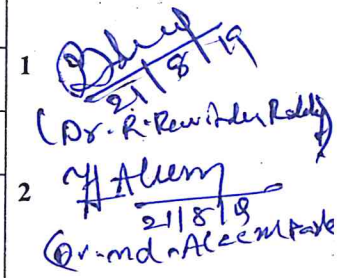 1
21/8/19
(Dr. R. Ravinder Reddy)
2
H Aleem
21/8/19
(Dr. md. Aleem